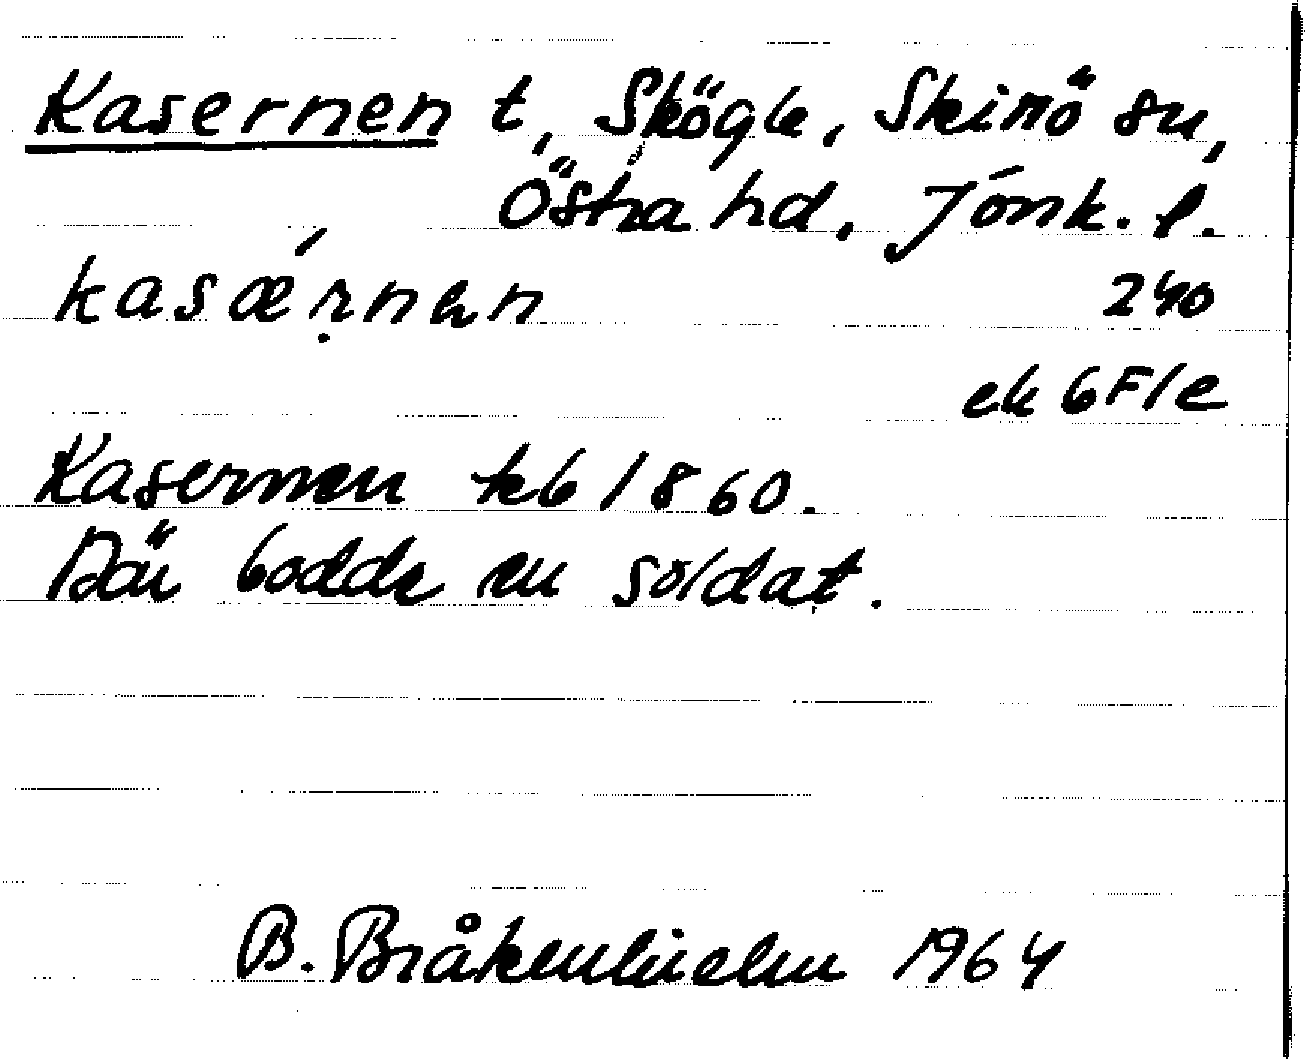 Kasernen t, Skögle, Skirö sn,
Östra hd, Jönk. l.
kasǽṛnen 240
ek 6F1e
Kasernen kb 1860.
Där bodde en soldat.
B. Bråkenhielm 1964